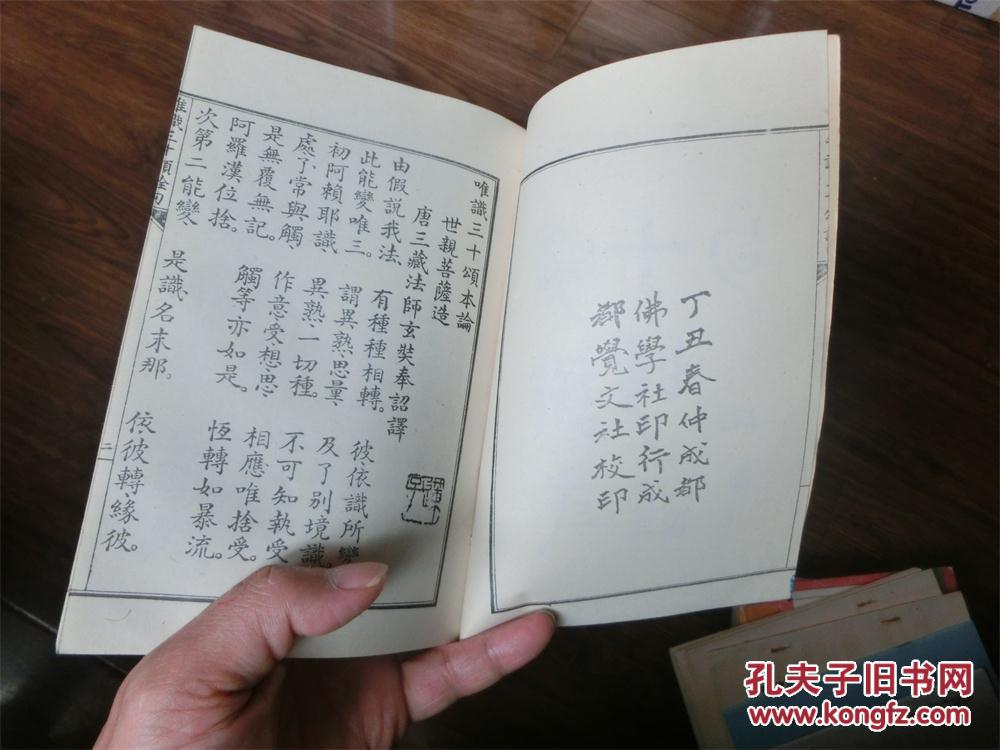 丁丑春仲成都
佛學社印行成
都覺文社校印
唯識三十頌本論
世親菩薩造
唐三藏法師玄奘奉詔譯
由假說我法、有種種相轉。彼依識所變
此能變唯三。謂異熟、思量、及了別境識。
初阿賴耶識、異熟、一切種。不可知執受
處、了、常與觸、作意、受、想、思、相應唯捨受。
是無覆無記。觸等亦如是。恆轉如暴流。
阿羅漢位捨。
次第二能變、是識名末那。依彼轉、緣彼。
唯識三十頌
二
孔夫子旧书网
www.kongfz.com